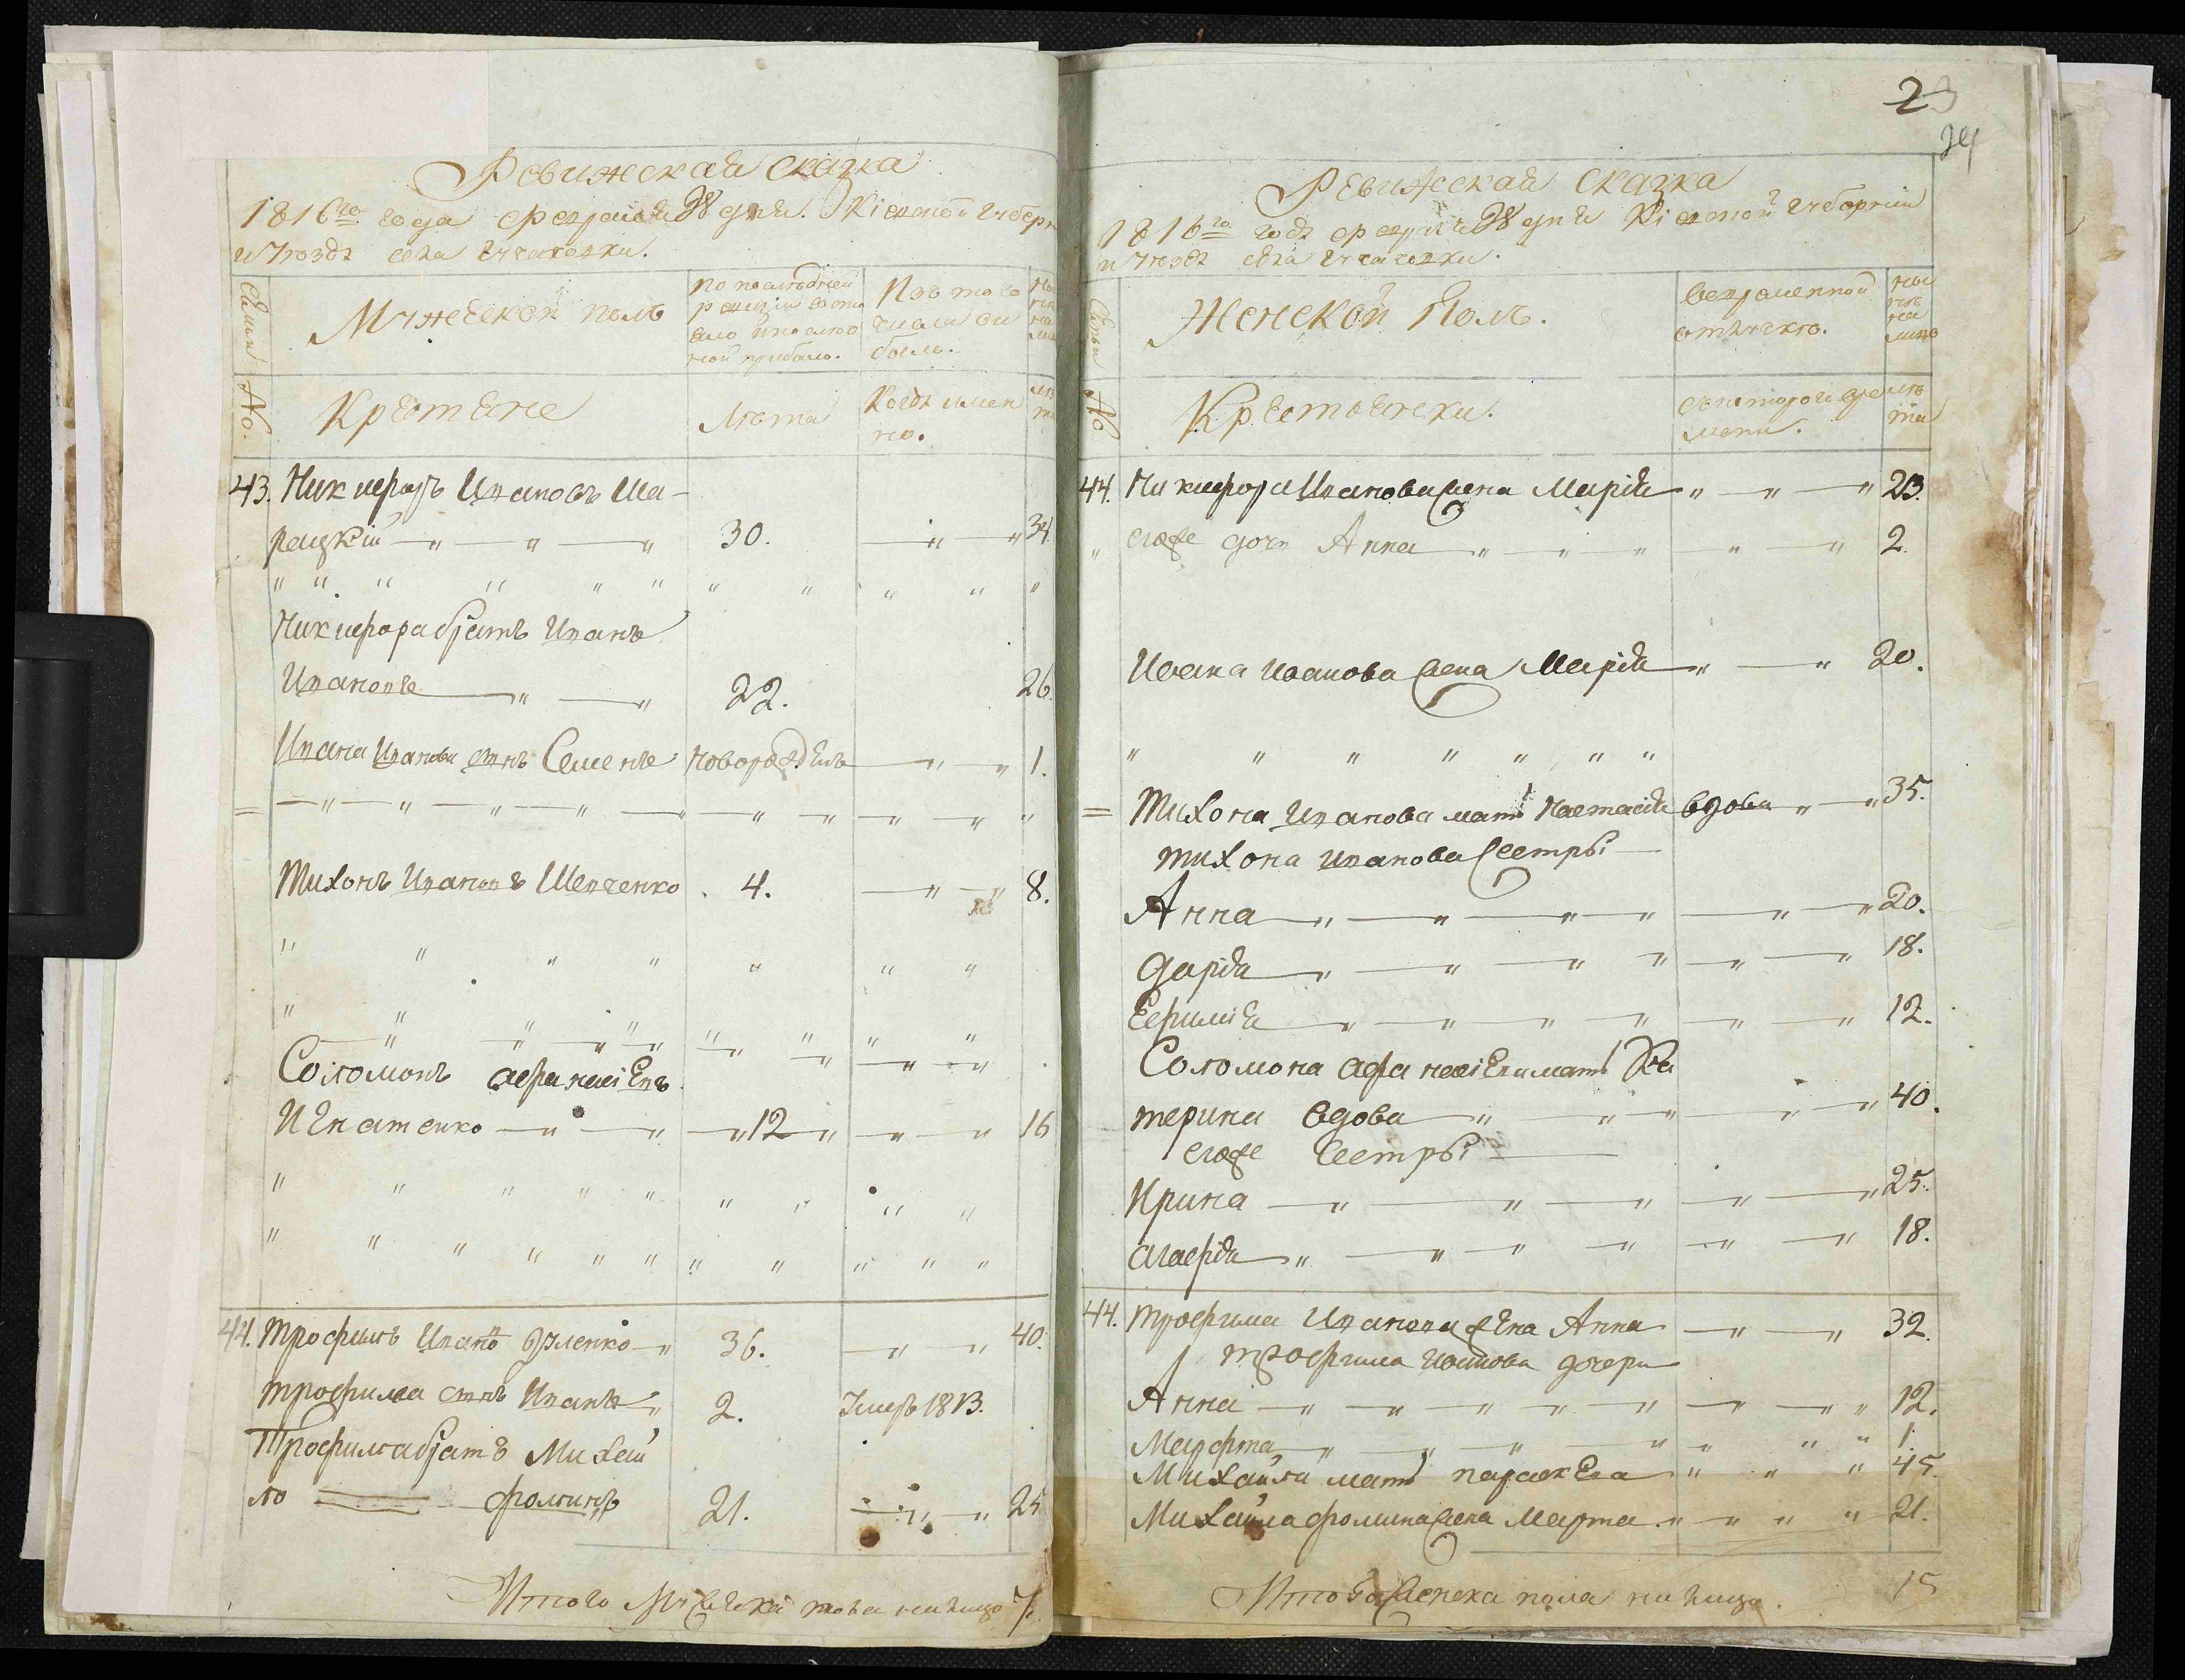 Ревижская сказка
1816го года февраля 28 дня. Кіевской губерн
и уезда села
Семьи
Мужескои полъ
по последней
ревизіи состо
яло и после
ной прибыло.
Изъ того
числа вы
было.
Ны
не
на
ли
No.
Крестяне
Лета
Когда имен
но.
ле
та
43. Никифоръ Ивановъ Ша-
рацкій 30. 34
Никифора братъ Иванъ
Ивановъ 22. 26.
Ивана Иванова сынъ Семенъ новорожденъ 1.
Тихонъ Ивановъ Шевченко 4. 8.
Соломонъ Афанасіевъ
Игнатенко 12 16
44. Трофимъ Ивановъ 36. 40.
Трофима сынъ Иванъ 2. Умеръ 1813.
Трофима братъ Михай
ло Фоминъ 21. 25
Итого Мужеска пола на лицо 7.
23
24
Ревижская сказка
1816го года февраля 28 дня Кіевской губерніи
и уезда села
Семьи
Женской Полъ.
Вовременной
отлучке.
Ны
не
на
лицо
No
Крестьянски.
Съ которого вре
мени.
ле
та
44. Никифора Иванова жена Марія 23.
Егоже дочь Анна 2.
Ивана Иванова жена Марія 20.
Тихона Иванова мать Настасія вдова 35.
Тихона Иванова сестры
Анна 20.
Дарія 18.
Ефимія 12.
Соломона Афанасіева мать Ка
терина вдова 40.
Егоже сестры
Ирина 25.
Агафія 18.
44. Трофима Иванова жена Анна 32.
Трофима Иванова дочери
Анна 12.
Марфта 1.
Михайла мать Параскева 45.
Михайла Фомина жена Марта 21.
Итого Женска пола на лицо. 15